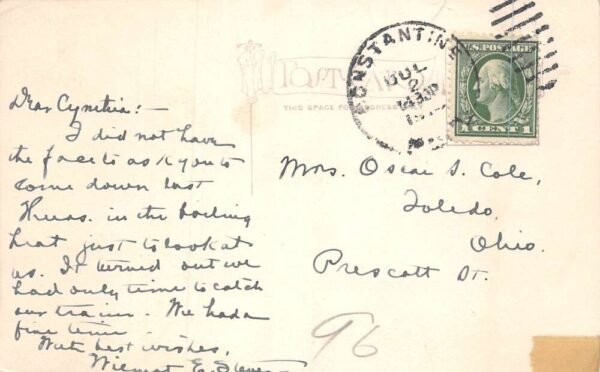 Dear Cynthia:-
I did not have
the face to ask you to
come down last
Thurs. in the boiling
heat just to look at
us. It turned out we
had only time to catch
our train. We had a
fine time.
With best wishes,
Wilmot E.
POST CARD
THIS SPACE FOR ADDRESS ONLY
CONSTANTINE
JUL
2
U.S. POSTAGE
1 CENT 1
Mrs. Oscar S. Cole,
Toledo,
Ohio.
Prescott St.
96